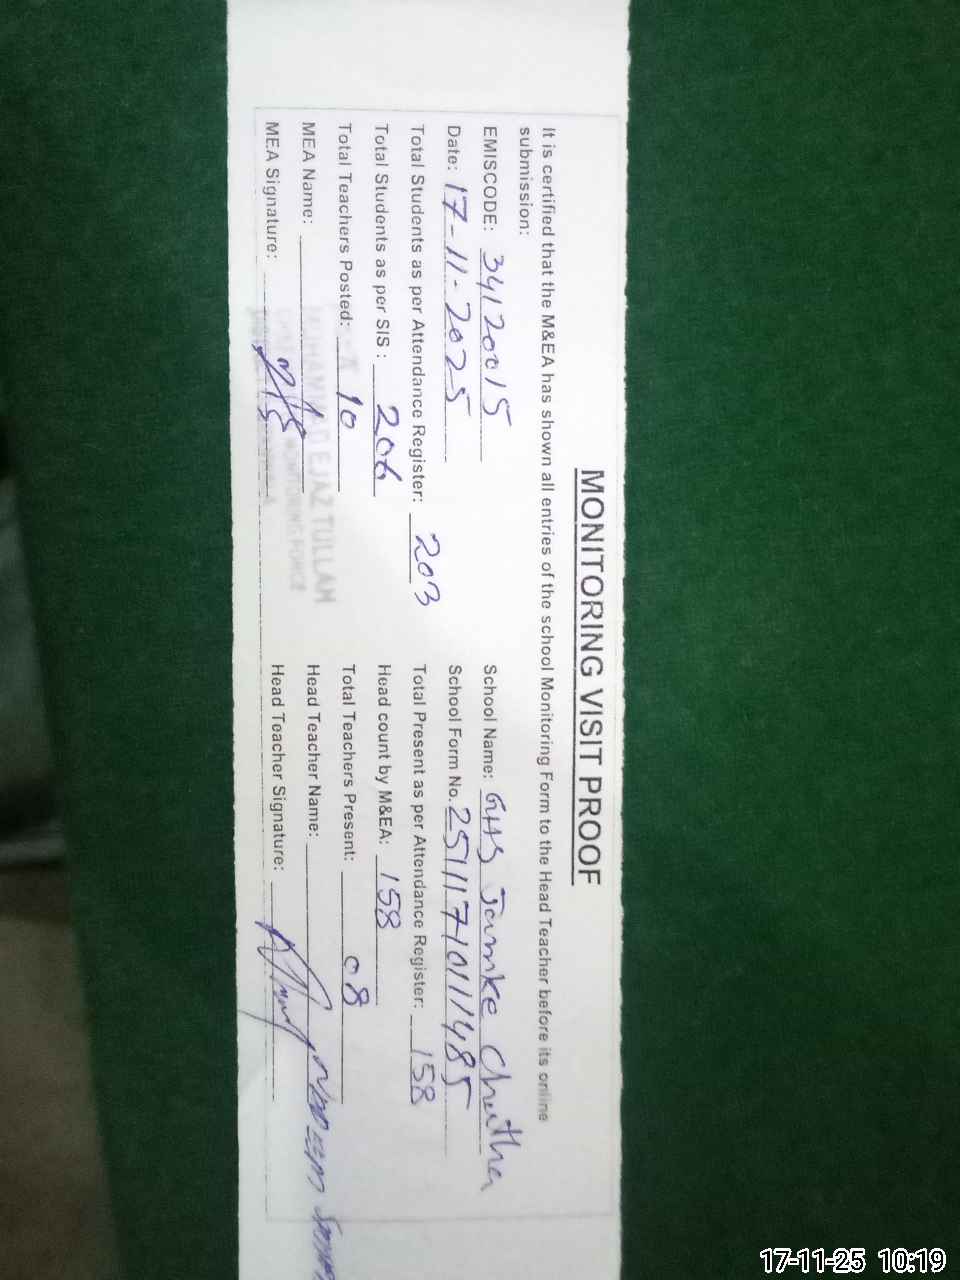 MONITORING VISIT PROOF
It is certified that the M&EA has shown all entries of the school Monitoring Form to the Head Teacher before its online
submission:
EMISCODE: 34120015 School Name: GHS Jamke Chattha
Date: 17-11-2025 School Form No. 251117101111485
Total Students as per Attendance Register: 203 Total Present as per Attendance Register: 158
Total Students as per SIS: 206 Head count by M&EA: 158
Total Teachers Posted: 10 Total Teachers Present: 08
MEA Name: MUHAMMAD EJAZ TULLAH Head Teacher Name:
MEA Signature: Head Teacher Signature:
17-11-25 10:19